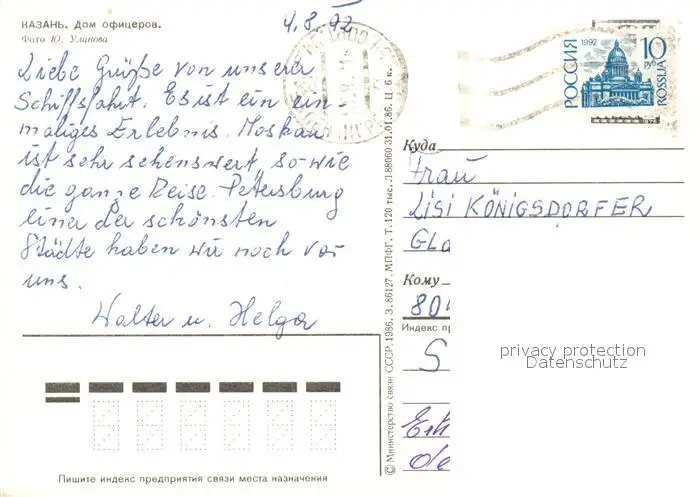 КАЗАНЬ. Дом офицеров.
Фото Ю. Уланова
4.8.92
Liebe Grüße von unserer
Schiffsfahrt. Es ist ein ein-
maliges Erlebnis. Moskau
ist sehr sehenswert, so wie
die ganze Reise. Petersburg
einer der schönsten
Städte haben wir noch vor
uns.
Walter u. Helga
Пишите индекс предприятия связи места назначения
© Министерство связи СССР. 1986. З. 86127. МПФГ. Т. 120 тыс. Л 88060 31.01.86. Ц. 6 к.
РОССИЯ
1992
10
руб
ROSSIJA
Куда
Frau
LISI KÖNIGSDORFER
Кому
Индекс
privacy protection
Datenschutz